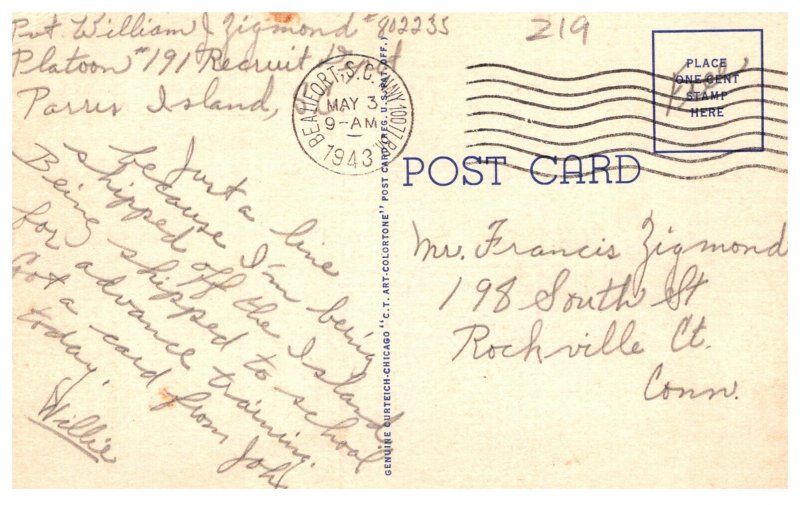 Pvt. William J Zigmond #802235
Platoon #191 Recruit Dept
Parris Island,
219
BEAUFORT, S.C.
MAY 3
9-AM
1943
PLACE
ONE CENT
STAMP
HERE
Free
POST CARD
Just a line
because I'm being
shipped off the Island
Being shipped to school
for advance training.
Got a card from John
today.
Willie
GENUINE CURTEICH-CHICAGO "C.T. ART-COLORTONE" POST CARD (REG. U.S. PAT. OFF.)
Mr. Francis Zigmond
198 South St
Rockville Ct.
Conn.